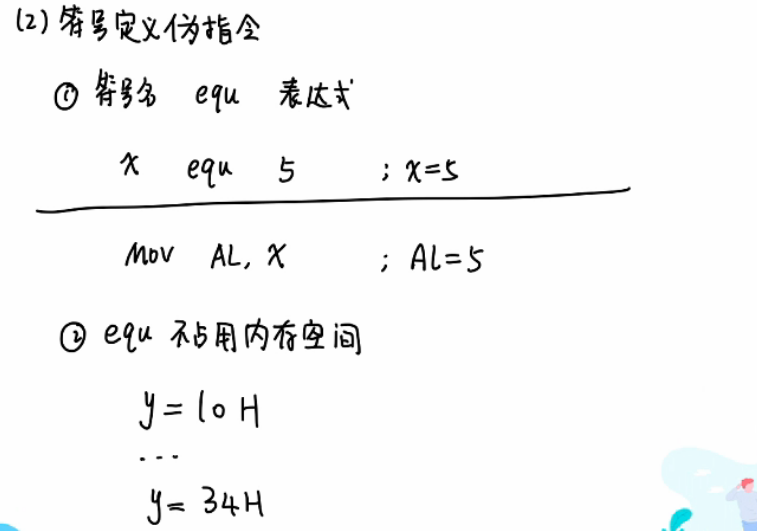 (2) 符号定义伪指令
① 符号名 equ 表达式
x equ 5 ; x=5
Mov AL, X ; AL=5
② equ 不占用内存空间
y=10H
...
y=34H